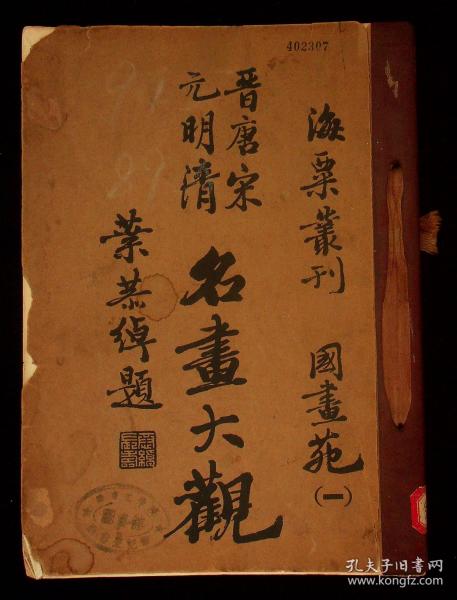 402307
海粟叢刊 國畫苑(一)
晋唐宋
元明清
名畫大觀
葉恭綽題
孔夫子旧书网
www.kongfz.com